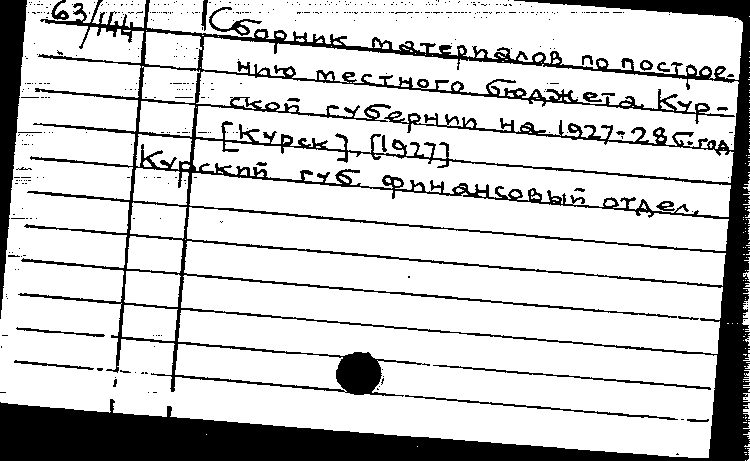 63/144
Сборник материалов по построе-
нию местного бюджета Кур-
ской губернии на 1927-28 б. год
[Курск], [1927]
Курский губ. финансовый отдел.